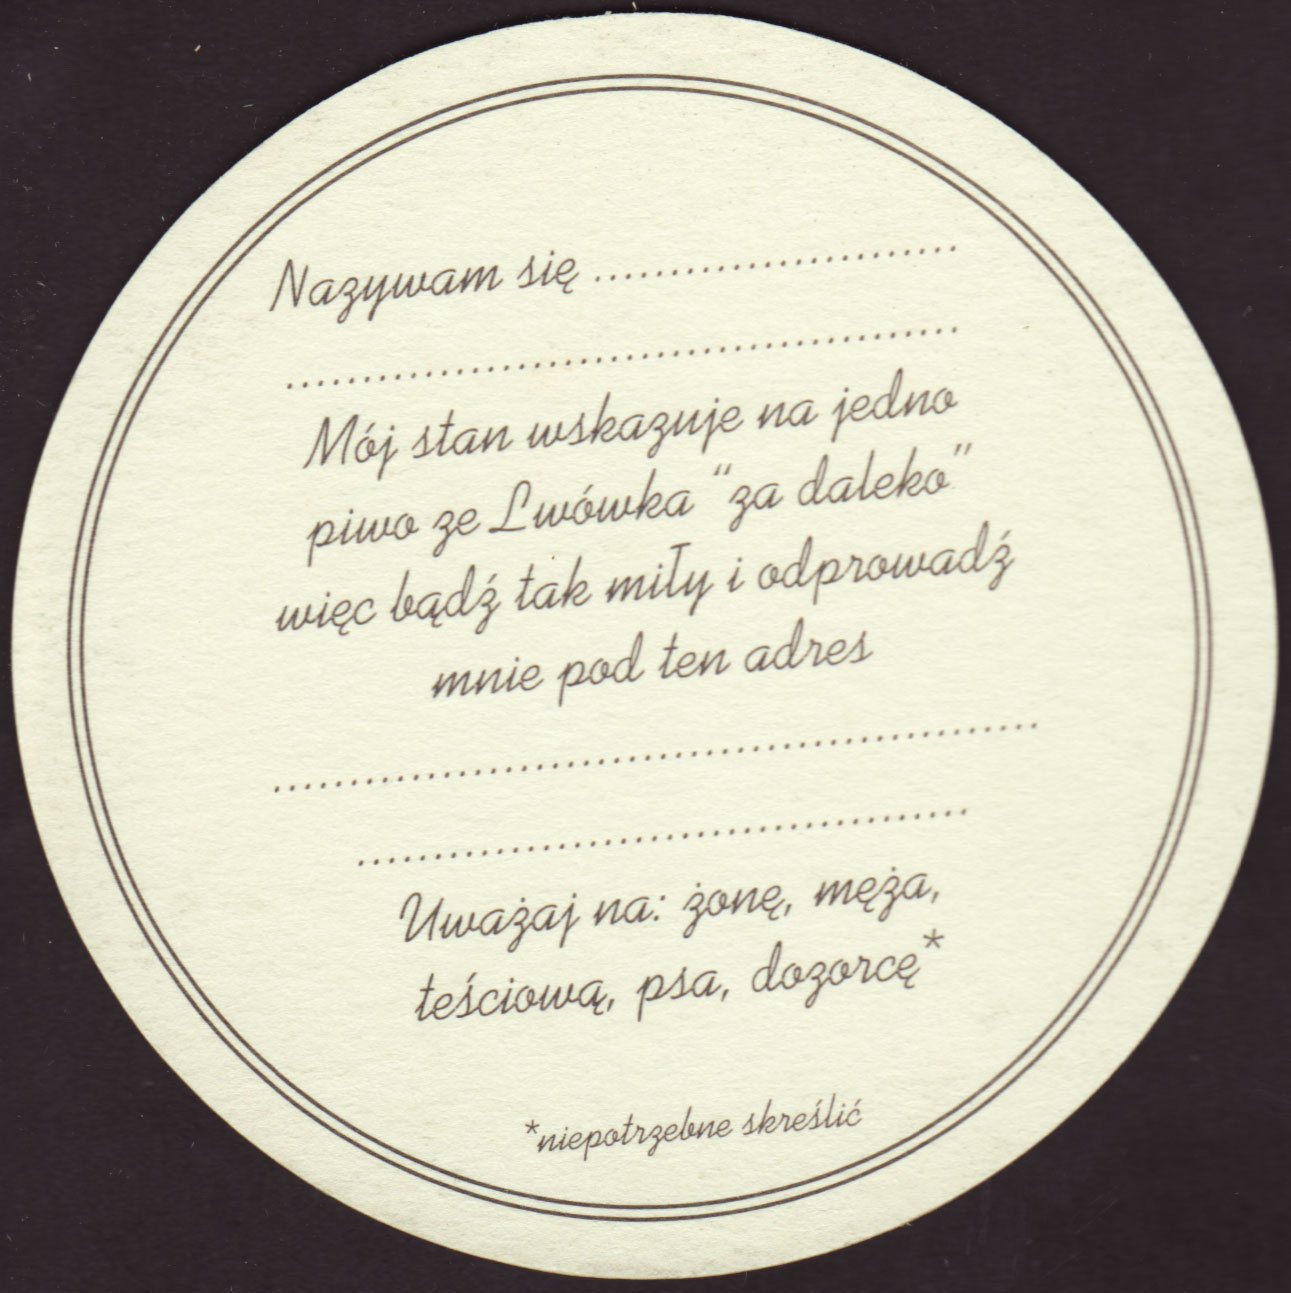 Nazywam się ........................
............................................
Mój stan wskazuje na jedno
piwo ze Lwówka "za daleko"
więc bądź tak miły i odprowadź
mnie pod ten adres
..................................................
........................................
Uważaj na: żonę, męża,
teściową, psa, dozorcę*
*niepotrzebne skreślić